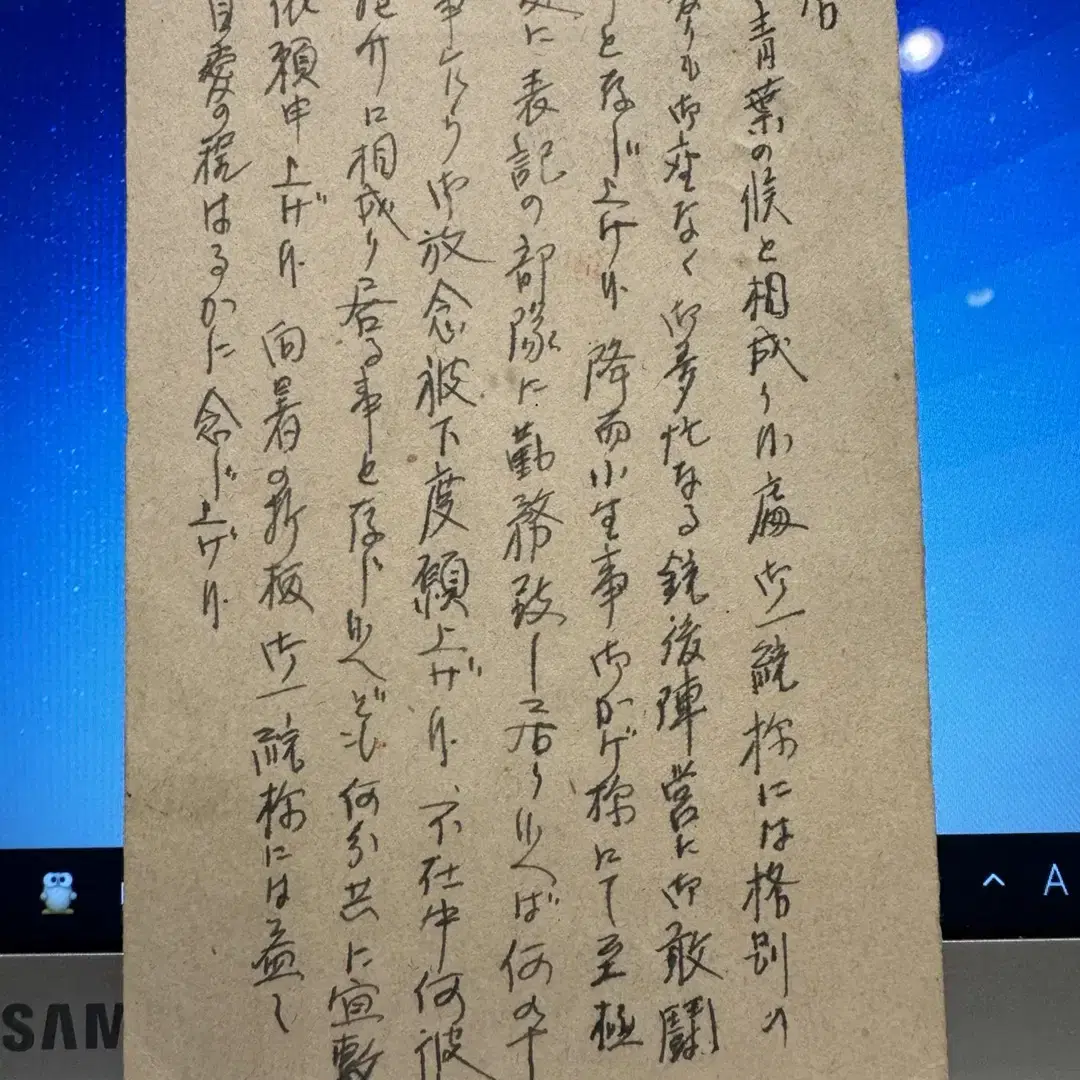 青葉の候と相成り候處御一統様には格別の
御座なく御多忙なる銃後陣営に御敢闘
と存じ上げ候 降而小生事御かげ様にて至極
に表記の部隊に勤務致し居り候へば何の
事に候 御放念被下度願上げ候、不在中何彼
介に相成り居る事と存じ候へども何分共に宜敷
依頼申上げ候 向暑の折柄御一統様には益々
自愛の程はるかに念じ上げ候
SAM
A